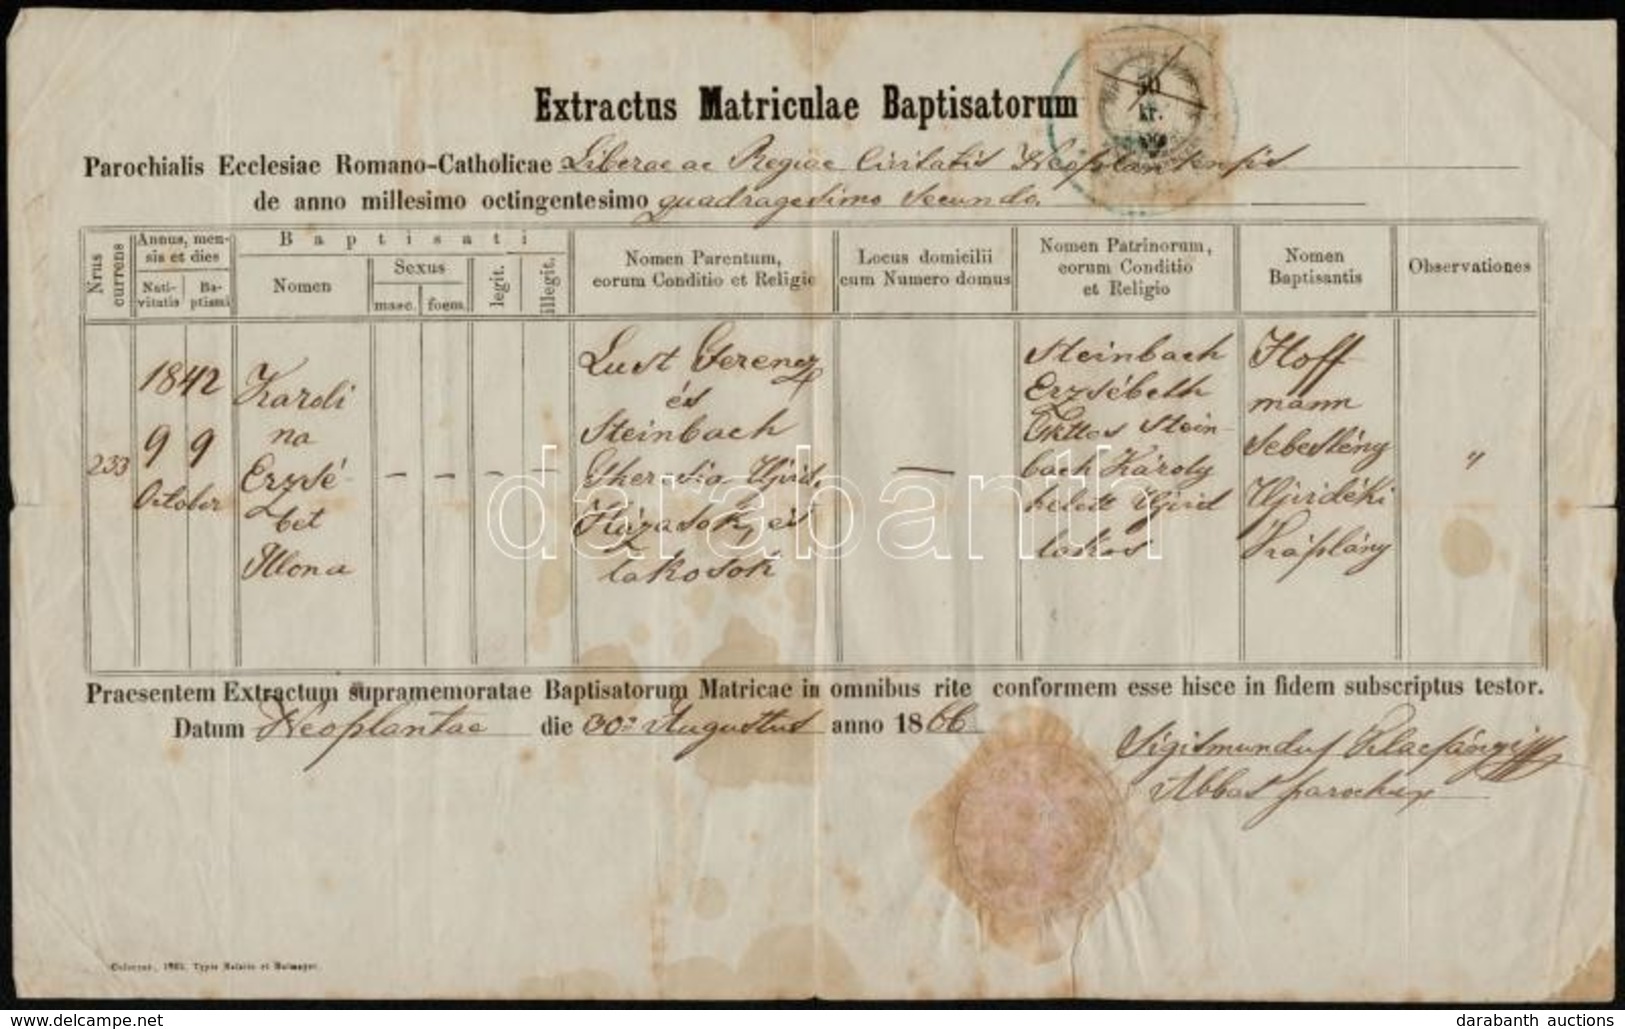 Extractus Matriculae Baptisatorum
50
kr.
Parochialis Ecclesiae Romano-Catholicae Liberae ac Regiae Civitatis Neoplantensis
de anno millesimo octingentesimo quadragesimo secundo.
Nrus currens
Annus, mensis et dies
Nativitatis
Baptismi
Baptisati
Nomen
Sexus
masc.
foem.
legit.
illegit.
Nomen Parentum,
eorum Conditio et Religio
Locus domicilii
cum Numero domus
Nomen Patrinorum,
eorum Conditio
et Religio
Nomen
Baptisantis
Observationes
233
1842
9 9
October
Karoli
na
Erzsé-
bet
Ilona
– – – –
Lust Ferencz
és
Steinbach
Theresia Ujvid.
Házasok, és
Lakosok
—
Steinbach
Erzsébeth
Stein-
bach Károly
helett Ujvid
lakos
Hoff
mann
Sebestény
Ujvidéki
Káplány
"
Praesentem Extractum supramemoratae Baptisatorum Matricae in omnibus rite conformem esse hisce in fidem subscriptus testor.
Datum Neoplantae die 30a Augustus anno 1866
Sigismundus
Abbas parochus
Coloczae, 1865. Typis
darabanth
www.delcampe.net
darabanth auctions